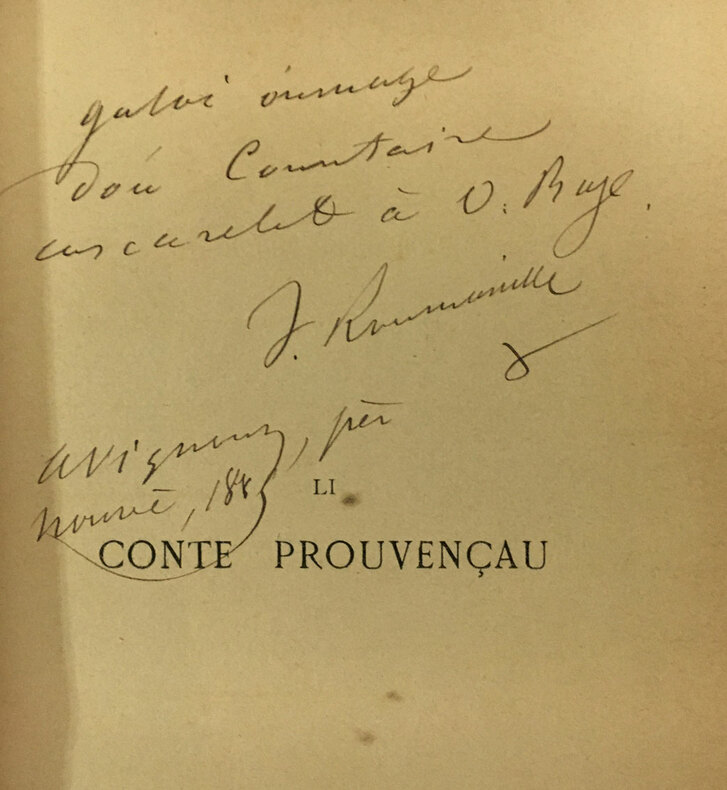 galoi óumage
dóu Countaire
cascarelet à V. Buye.
J. Roumanille
Avignoun, pèr
nouvè, 188
LI
CONTE PROUVENÇAU